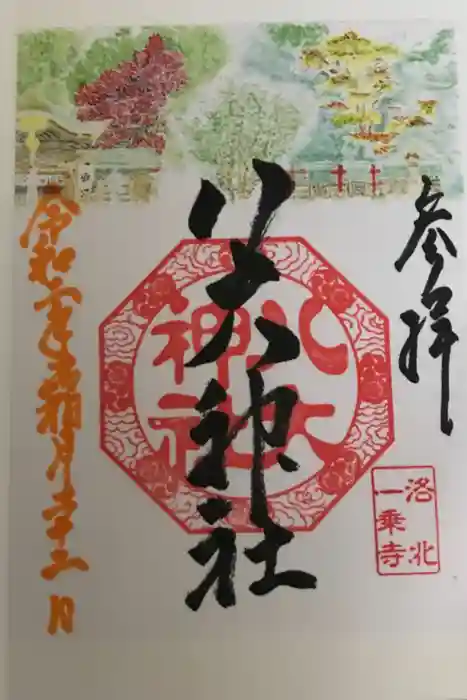 参拝
洛北
一乗寺
八大神社
八大
神社
令和 年霜月 日